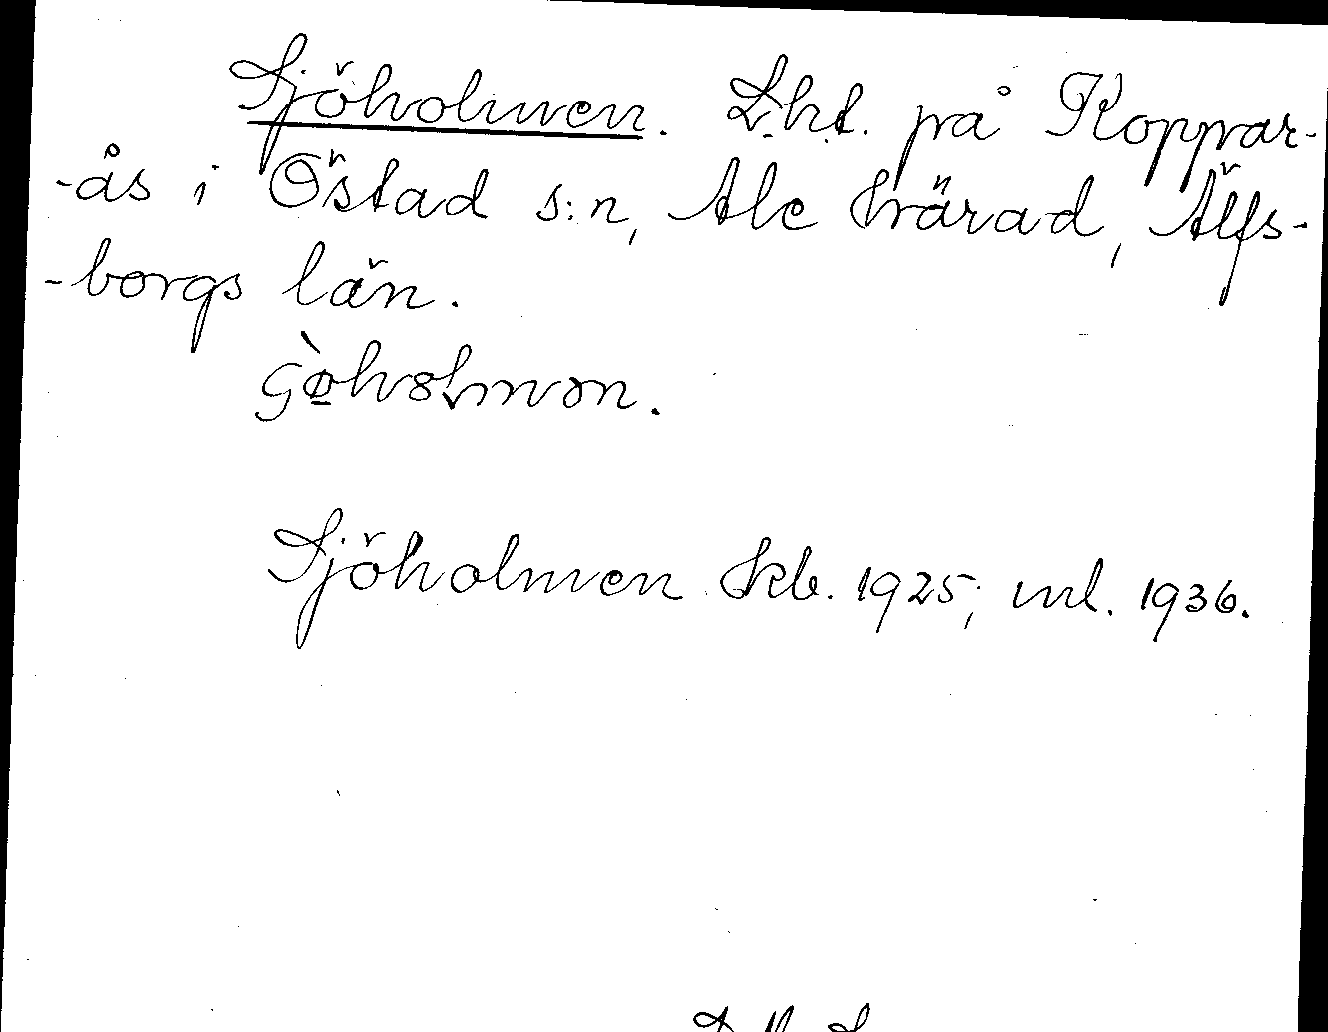 Sjöholmen. Lht. på Koppar-
-ås i Östad s:n, Ale härad, Älfs-
-borgs län.
Sjöholmen skb. 1925; ml. 1936.